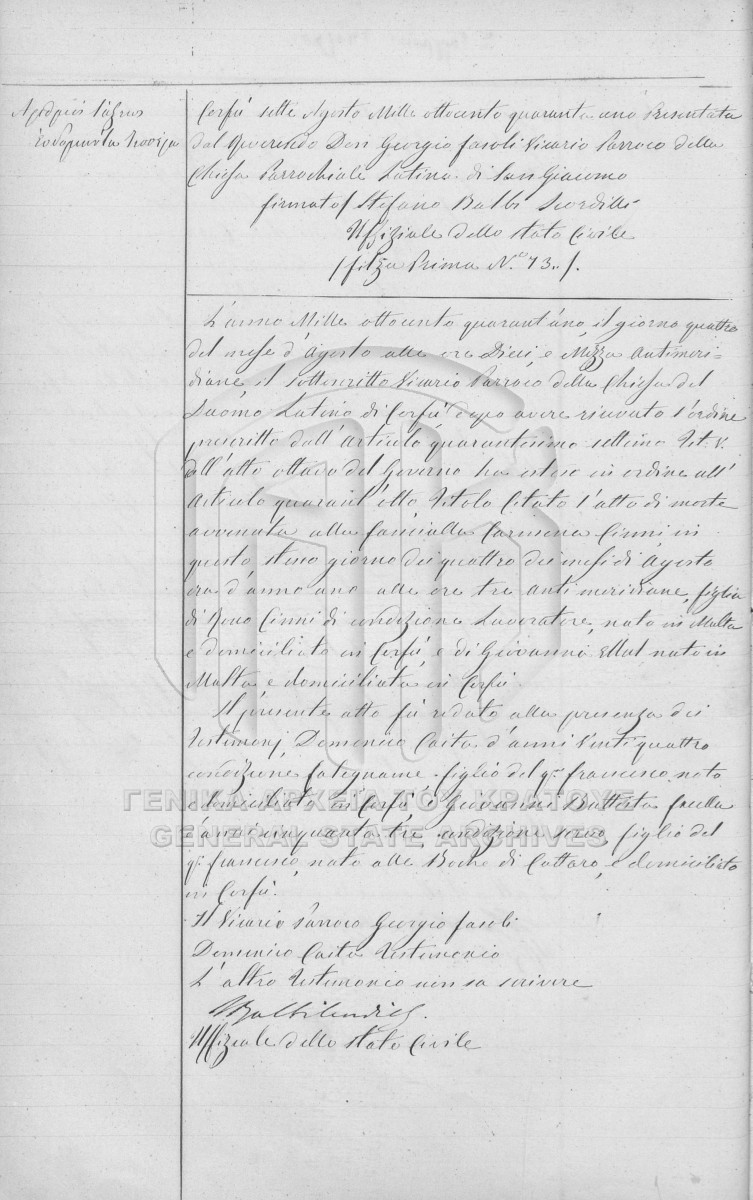 Αριθμός τάξεως
εβδομήντα τέσσερα
Corfù sette Agosto Mille ottocento quaranta uno Presentata
dal Reverendo Don Georgio Fasoli Vicario Parroco della
Chiesa Parrochiale Latina di San Giacomo
firmato/ Stefano Balbi Scordilli
Uffiziale dello stato Civile
/filza Prima N.° 73../.
L'anno Mille ottocento quarant'uno, il giorno quattro
del mese d'Agosto alle ore Dieci, e Mezza Antimeri-
diane, il sottoscritto Vicario Parroco della Chiesa del
Duomo Latino di Corfù dopo avere ricevuto l'ordine
prescritto dall'articolo quarantesimo settimo Tit. V.
dell'atto ottavo del Governo ha esteso in ordine all'
Articolo quarant'otto, Titolo Citato l'atto di morte
avvenuta alla fanciulla Carmena Cinni in
questo stesso giorno dei quattro dei mesi di Agosto
era d'anno uno alle ore tre antimeridiane, figlia
di Cinni di condizione Lavoratore, nato in Malta
e domiciliato in Corfù, e di Giovanna nata in
Malta e domiciliata in Corfù.
Il presente atto fù redato alla presenza dei
Testimonj, Domenico Caita d'anni Venti quattro
condizione falegname figlio del q.m francesco, nato
e domiciliato in Corfù, Giovanni Battista
d'anni cinquanta tre condizione servo, figlio del
q.m francesco, nato alle Boche di Cattaro, e domiciliato
in Corfù.
Il Vicario Parroco Georgio Fasoli
Domenico Caita Testimonio
L'altro Testimonio non sa scrivere
Uffiziale dello stato Civile
ΓΕΝΙΚΑ ΑΡΧΕΙΑ ΤΟΥ ΚΡΑΤΟΥΣ
GENERAL STATE ARCHIVES